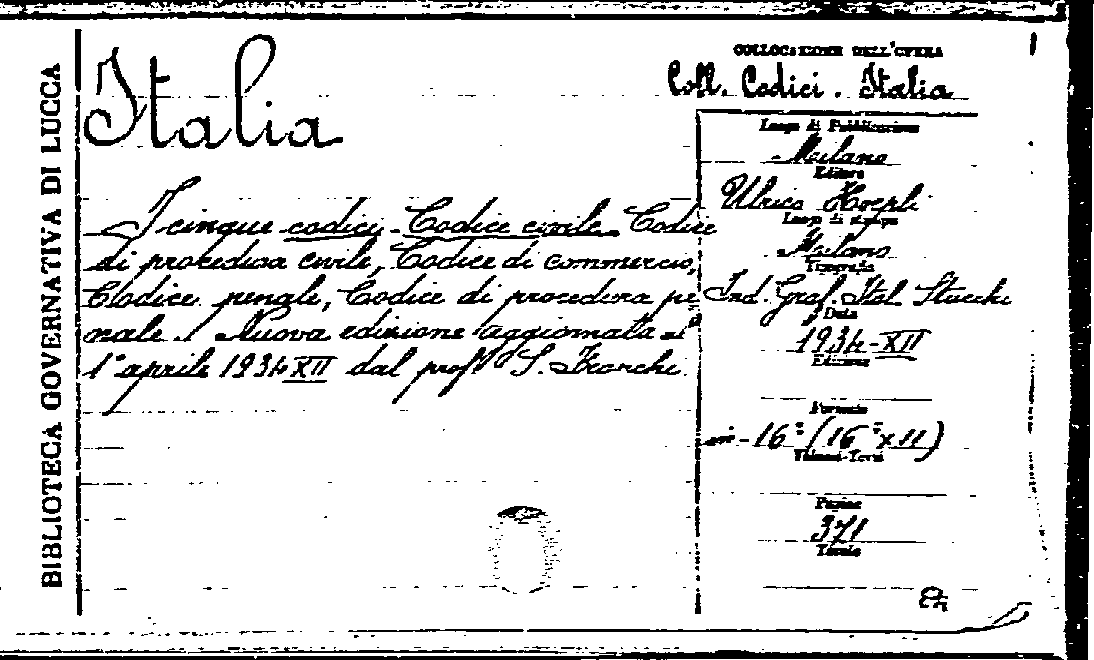 BIBLIOTECA GOVERNATIVA DI LUCCA
Italia
I cinque codici. Codice civile. Codice
di procedura civile, Codice di commercio,
Codice penale, Codice di procedura pe
nale. Nuova edizione aggiornata al
1° aprile 1934 XII dal prof. S. Franchi.
COLLOCAZIONE DELL'OPERA
Coll. Codici. Italia
Luogo di Pubblicazione
Milano
Editore
Ulrico Hoepli
Luogo di stampa
Milano
Tipografia
Ind. Graf. Ital. Stucchi
Data
1934-XII
Edizione
Formato
in-16° (16 x 11)
Volumi-Tomi
Pagine
371
Tavole